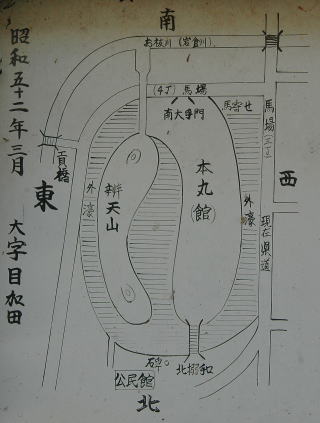 昭和五十二年三月
大字目加田
南
お板川(岩倉川)
(4丁)馬場
馬寄せ
南大手門
馬場
西
本丸
(館)
弁天山
外濠
外濠
現在県道
貢橋
東
碑
公民館
北